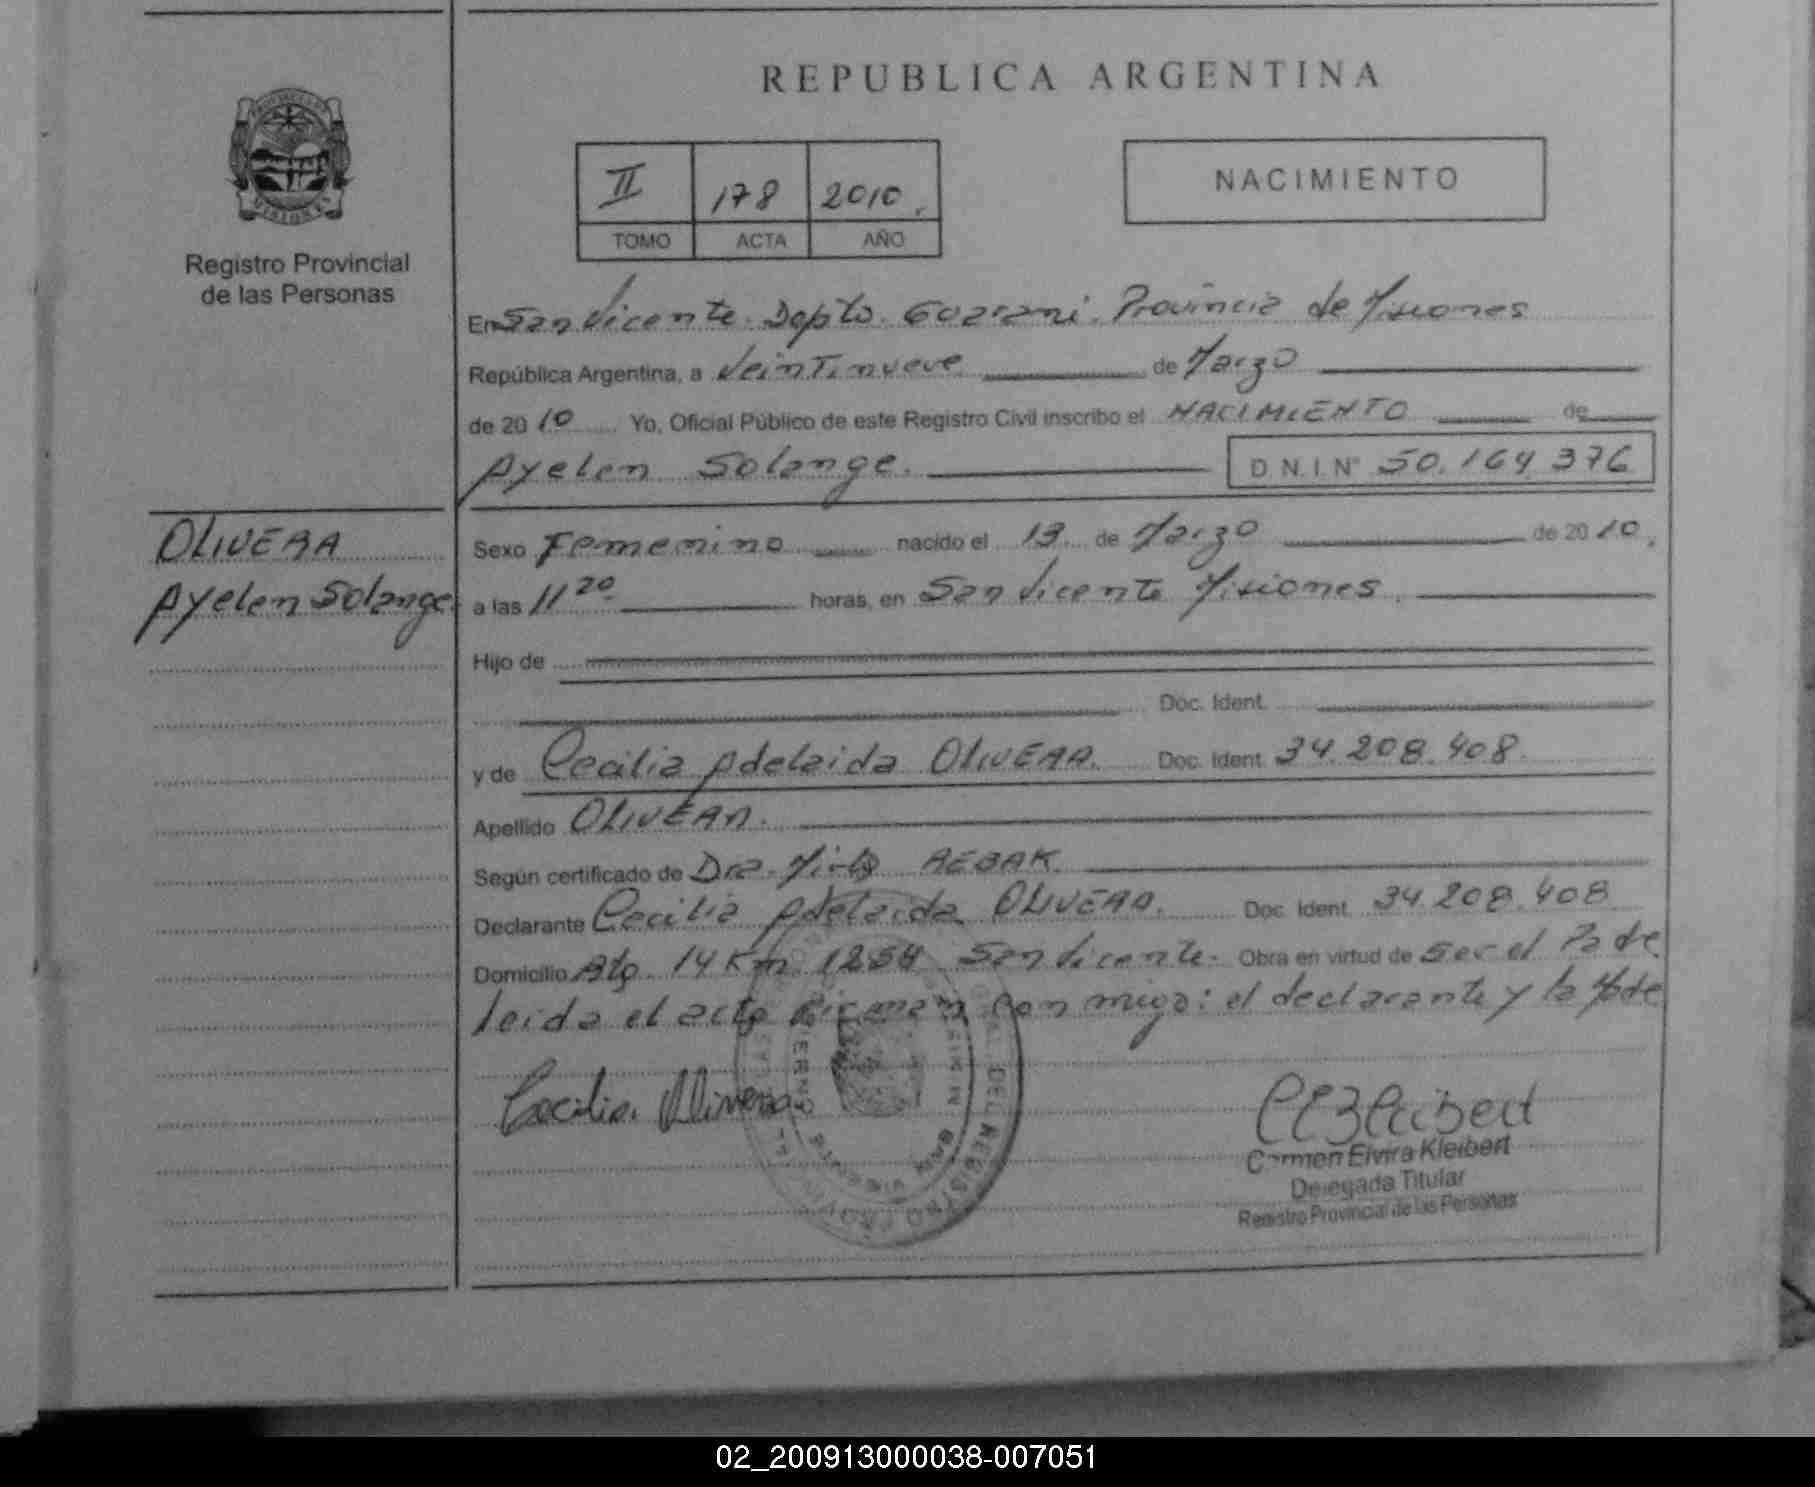 REPUBLICA ARGENTINA
PROVINCIA DE
MISIONES
Registro Provincial
de las Personas
II 178 2010.
TOMO ACTA AÑO
NACIMIENTO
En San Vicente. Depto. Guarani. Provincia de Misiones
República Argentina, a Veintinueve de Marzo
de 2010 Yo, Oficial Público de este Registro Civil inscribo el NACIMIENTO de
Ayelen Solange. D.N.I.N° 50.164.376
OLIVERA
Ayelen Solange
Sexo Femenino nacido el 13 de Marzo de 2010.
a las 11 20 horas, en San Vicente Misiones.
Hijo de
Doc. Ident.
y de Cecilia Adelaida OLIVERA. Doc. Ident. 34.208.408.
Apellido OLIVERA.
Según certificado de Dra. REBAK.
Declarante Cecilia Adelaida OLIVERA. Doc. Ident. 34.208.408
Domicilio 14 Km. San Vicente. Obra en virtud de ser el
leida el acta firman con migo: el declarante y la
Cecilia Olivera
DEL REGISTRO PROVINCIAL
Carmen Elvira Kleibert
Delegada Titular
Registro Provincial de las Personas
02_200913000038-007051